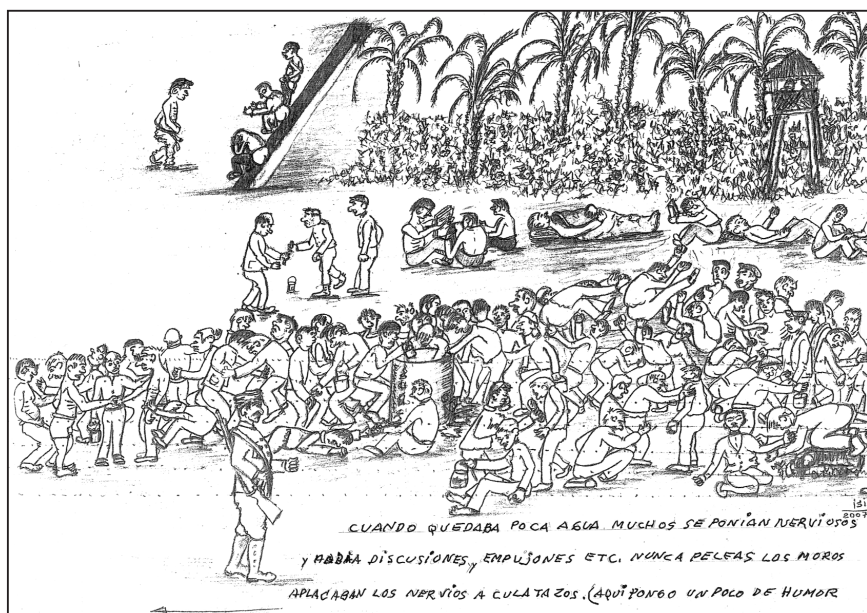 isi
2007
CUANDO QUEDABA POCA AGUA MUCHOS SE PONIAN NERVIOSOS
y HABÍA DISCUSIONES, EMPUJONES ETC. NUNCA PELEAS LOS MOROS
APLACABAN LOS NERVIOS A CULATAZOS. (AQUI PONGO UN POCO DE HUMOR